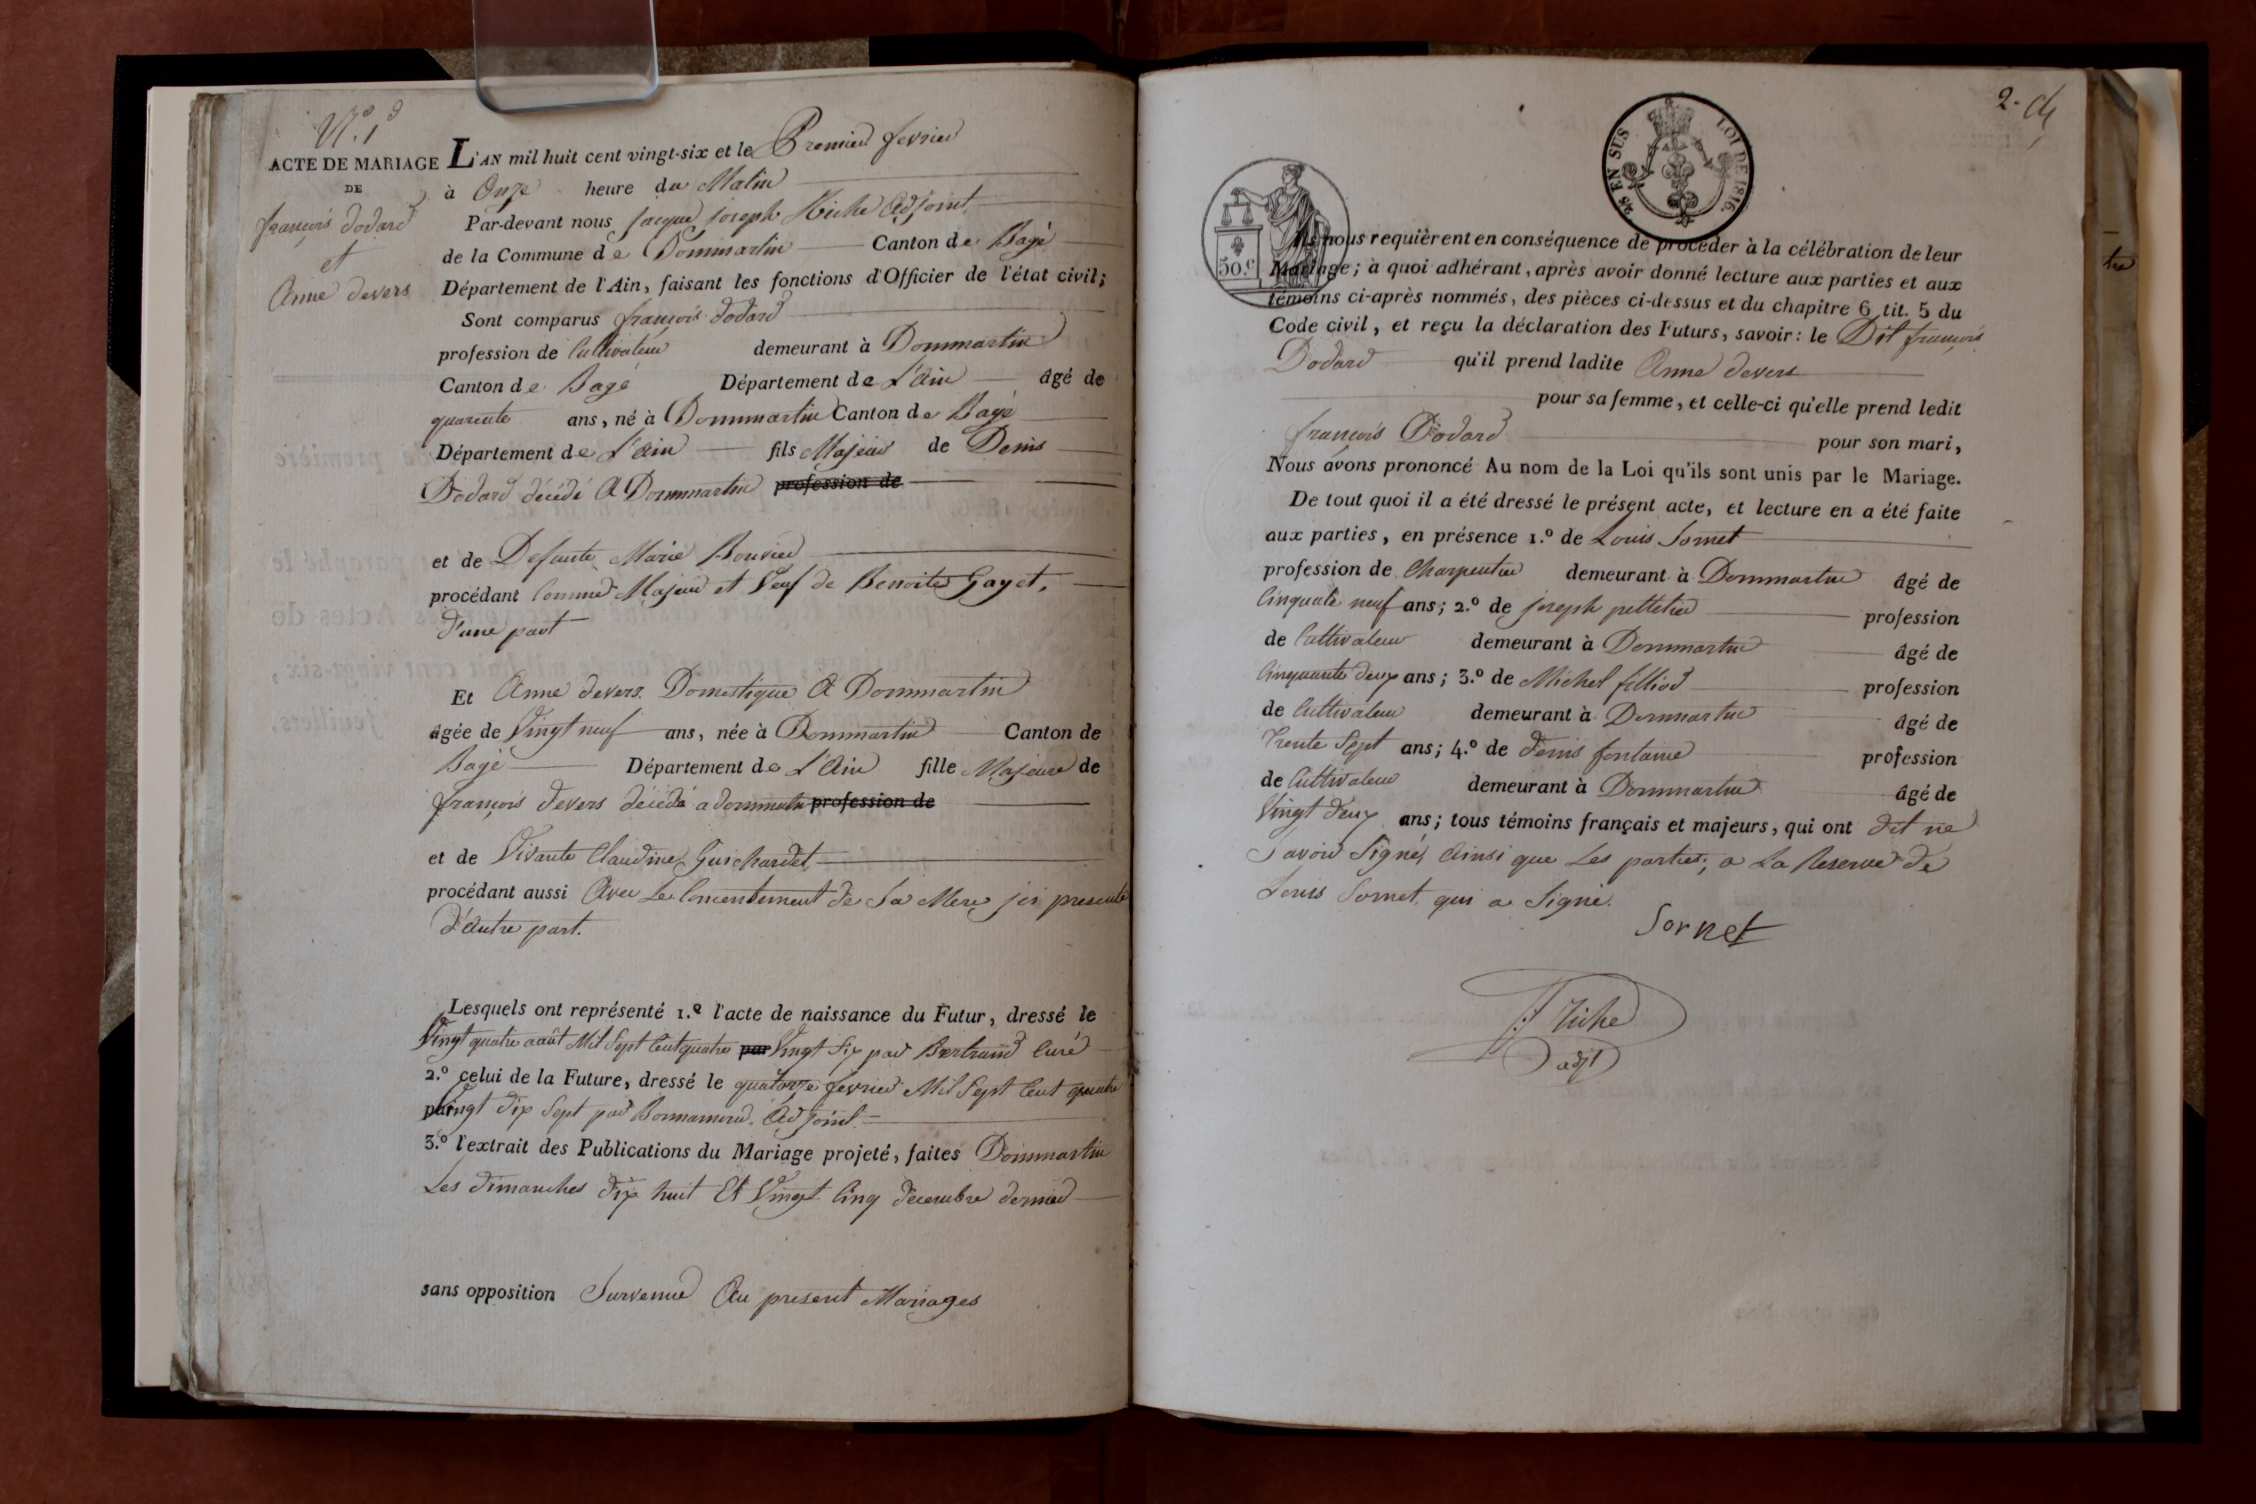 N.o 1er
ACTE DE MARIAGE
DE
françois dodard
et
Anne devers
L'AN mil huit cent vingt-six et le Premier fevrier
à Onze heure du Matin
Par-devant nous jacque joseph Adjoint
de la Commune de Dommartin Canton de Bagé
Département de l'Ain, faisant les fonctions d'Officier de l'état civil;
Sont comparus françois dodard
profession de Cultivateur demeurant à Dommartin
Canton de Bagé Département de L'Ain âgé de
quarente ans, né à Dommartin Canton de Bagé
Département de L'ain fils Majeur de Denis
Dodard décédé A Dommartin profession de
et de Defunte Marie Bouvier
procédant Comme Majeur et Veuf de Benoite Gayet,
d'une part
Et Anne devers Domestique A Dommartin
âgée de Vingt neuf ans, née à Dommartin Canton de
Bagé Département de L'Ain fille Majeure de
françois devers décédé a dommartin profession de
et de Vivante Claudine Guichardet
procédant aussi Avec Le Consentement de Sa Mere ici presente
d'Autre part.
Lesquels ont représenté 1.o l'acte de naissance du Futur, dressé le
Vingt quatre août Mil Sept Cent quatre par Vingt Six par Bertrand Curé
2.o celui de la Future, dressé le quatorze fevrier Mil Sept Cent quatre
Vingt dix Sept par Adjoint
3.o l'extrait des Publications du Mariage projeté, faites Dommartin
Les dimanches dix huit Et Vingt Cinq décembre dernier
sans opposition Survenue Au present Mariages
2.
28 EN SUS LOI DE 1816.
50.c
Ils nous requièrent en conséquence de procéder à la célébration de leur
Mariage; à quoi adhérant, après avoir donné lecture aux parties et aux
témoins ci-après nommés, des pièces ci-dessus et du chapitre 6 tit. 5 du
Code civil, et reçu la déclaration des Futurs, savoir: le Dit françois
Dodard qu'il prend ladite Anne devers
pour sa femme, et celle-ci qu'elle prend ledit
françois Dodard pour son mari,
Nous avons prononcé Au nom de la Loi qu'ils sont unis par le Mariage.
De tout quoi il a été dressé le présent acte, et lecture en a été faite
aux parties, en présence 1.o de Louis Sornet
profession de Charpentier demeurant à Dommartin âgé de
Cinquate neuf ans; 2.o de joseph pelletier profession
de Cultivateur demeurant à Dommartin âgé de
Cinquante deux ans; 3.o de Michel filliod profession
de Cultivateur demeurant à Dommartin âgé de
Trente Sept ans; 4.o de denis fontaine profession
de Cultivateur demeurant à Dommartin âgé de
Vingt deux ans; tous témoins français et majeurs, qui ont dit ne
Savoir Signé Ainsi que Les parties; a La Reserve de
Louis Sornet qui a Signé.
Sornet
adjt